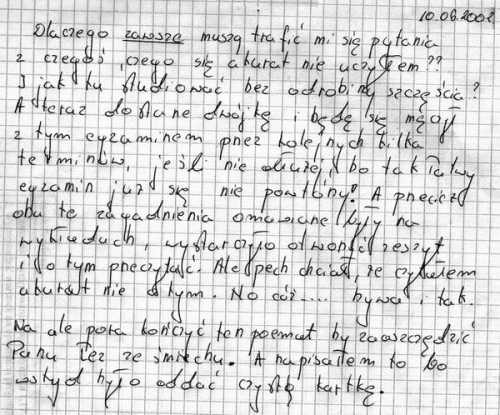 10.06.2002
Dlaczego zawsze muszą trafić mi się pytania
z czegoś, czego się akurat nie uczyłem??
I jak tu studiować bez odrobiny szczęścia?
A teraz dostanę dwójkę i będę się męczył
z tym egzaminem przez kolejnych kilka
terminów, jeśli nie dłużej, bo tak łatwy
egzamin już się nie powtórzy. A przecież
oba te zagadnienia omawiane były na
wykładach, wystarczyło otworzyć zeszyt
i o tym przeczytać. Ale pech chciał, że czytałem
akurat nie o tym. No cóż.... bywa i tak.
Na ale pora kończyć ten poemat by zaoszczędzić
Panu łez ze śmiechu. A napisałem to bo
wstyd było oddać czystą kartkę.